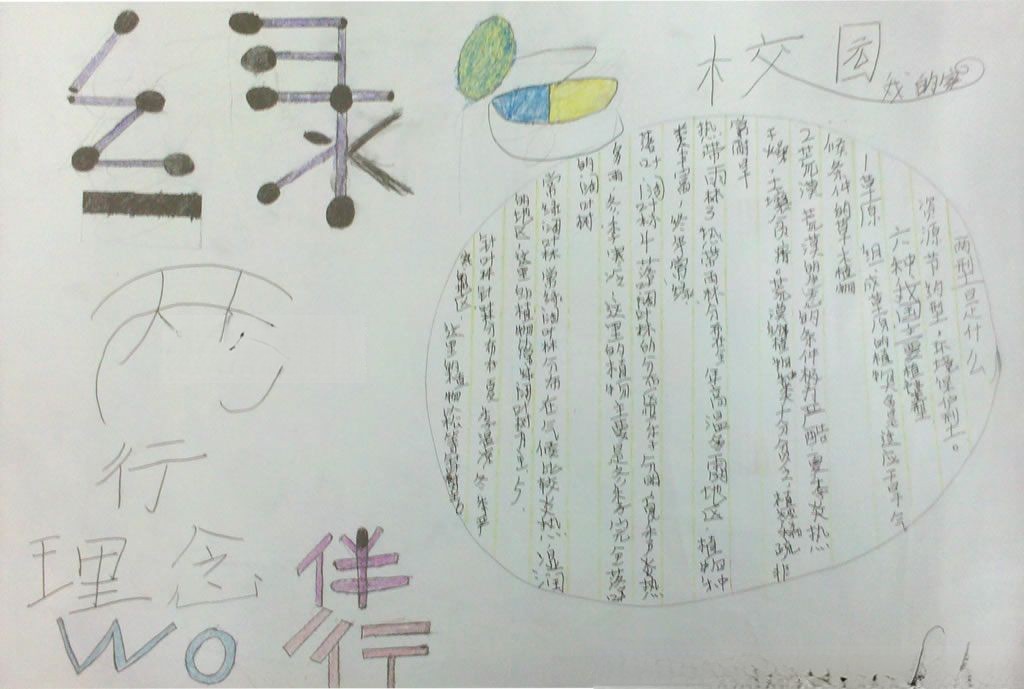 绿
校园
我的家
两
行
理念伴
WO 行
两型是什么
资源节约型,环境保护型。
六种我国主要植被型
1草原 组成草原的植物是适应干旱气
候条件的草本植物
2荒漠 荒漠的条件极为严酷夏季炎热
干燥,土壤贫瘠。荒漠的植物种类十分贫乏,植被稀疏非
常耐旱
热带雨林3 热带雨林分布于全年高温多雨地区 植物种
类丰富,终年常绿
落叶阔叶林4 落叶阔叶林的分布区四季分明,夏季炎热
多雨,冬季寒冷,这里的植物主要是冬季完全落叶
的阔叶树
常绿阔叶林 常绿阔叶林分布在气候比较炎热,湿润
的地区,这里的植物以常绿阔叶树为主
针叶林 针叶林分布在夏季温凉 冬季严
寒的地区 这里的植物